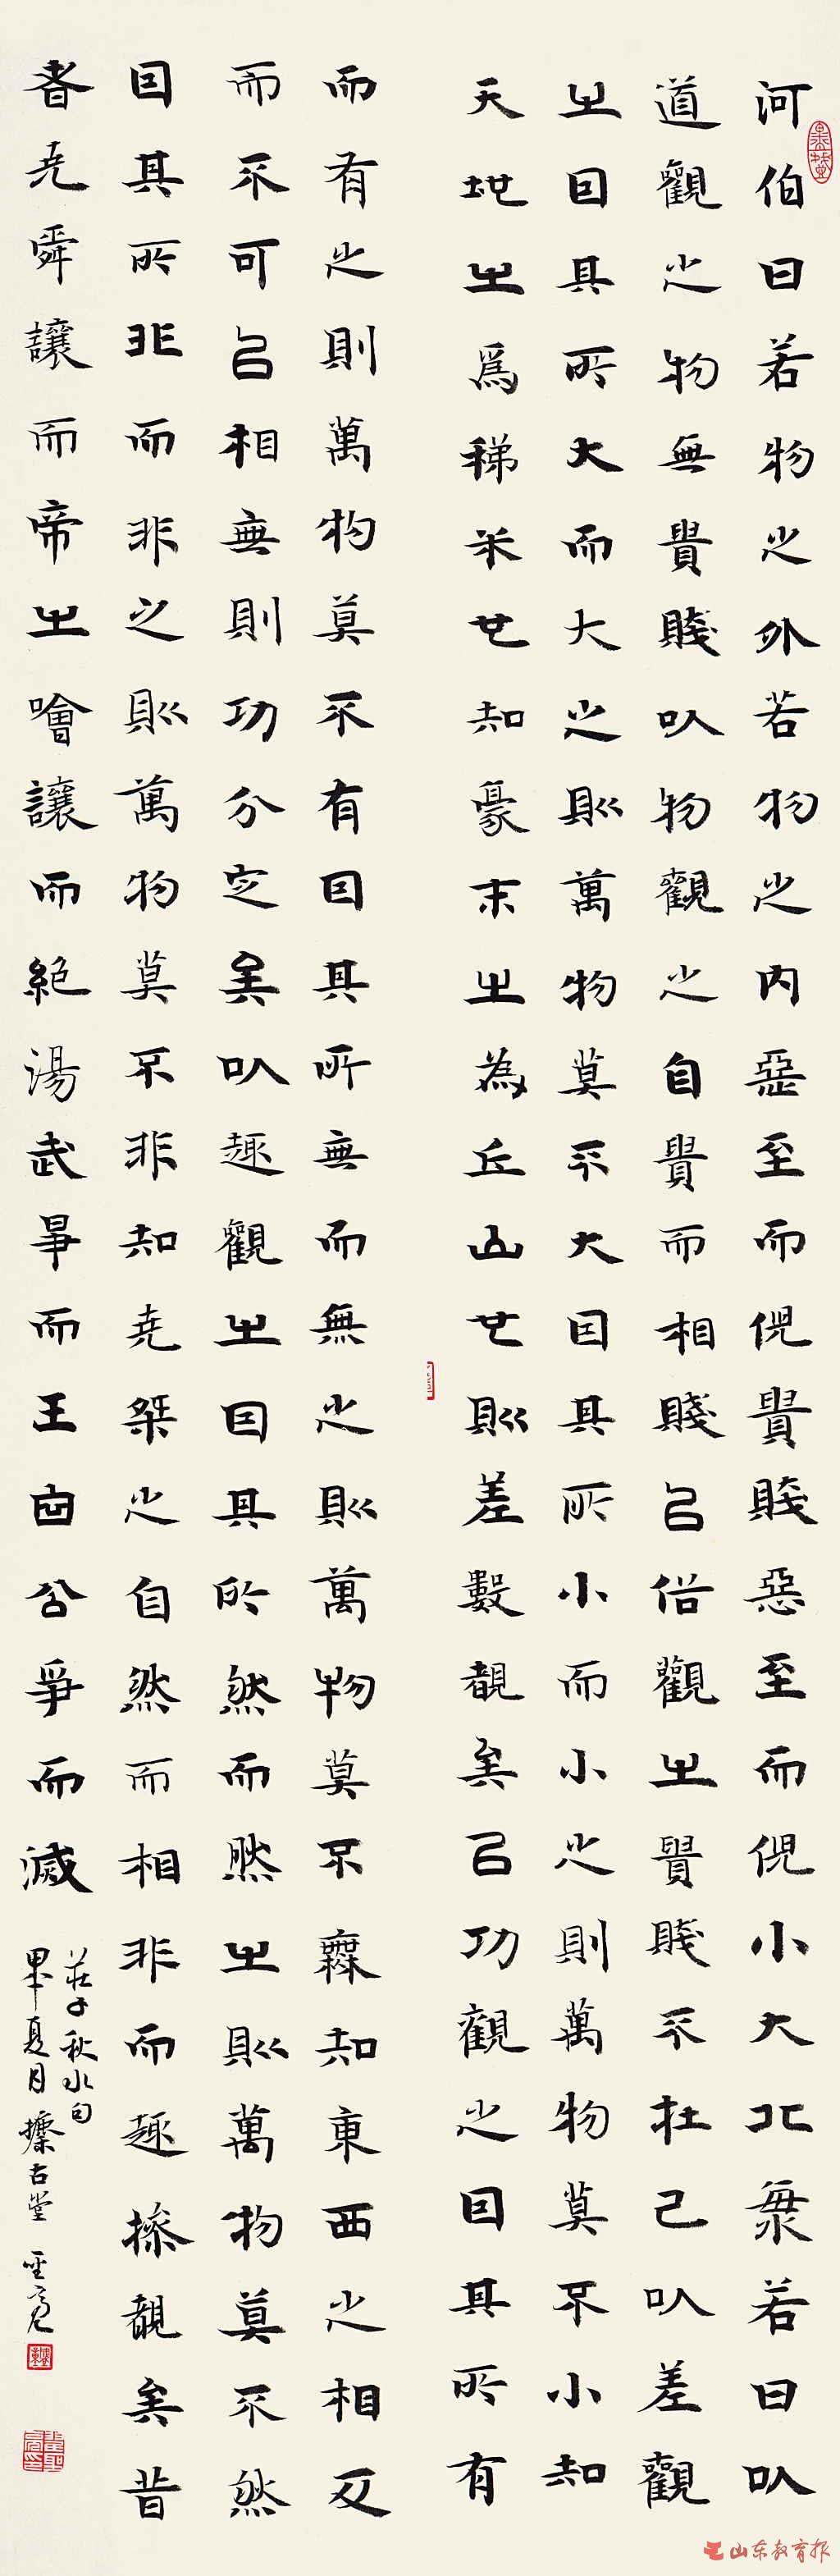 河伯曰若物之外若物之内惡至而倪貴賤惡至而倪小大北海若曰以
道觀之物無貴賤以物觀之自貴而相賤以俗觀之貴賤不在己以差觀
之因其所大而大之則萬物莫不大因其所小而小之則萬物莫不小知
天地之爲稊米也知豪末之為丘山也則差數覩矣以功觀之因其所有
而有之則萬物莫不有因其所無而無之則萬物莫不無知東西之相反
而不可以相無則功分定矣以趣觀之因其所然而然之則萬物莫不然
因其所非而非之則萬物莫不非知堯桀之自然而相非而趣操覩矣昔
者堯舜讓而帝之噲讓而絕湯武爭而王白公爭而滅
莊子秋水句
夏月古堂
山东教育报